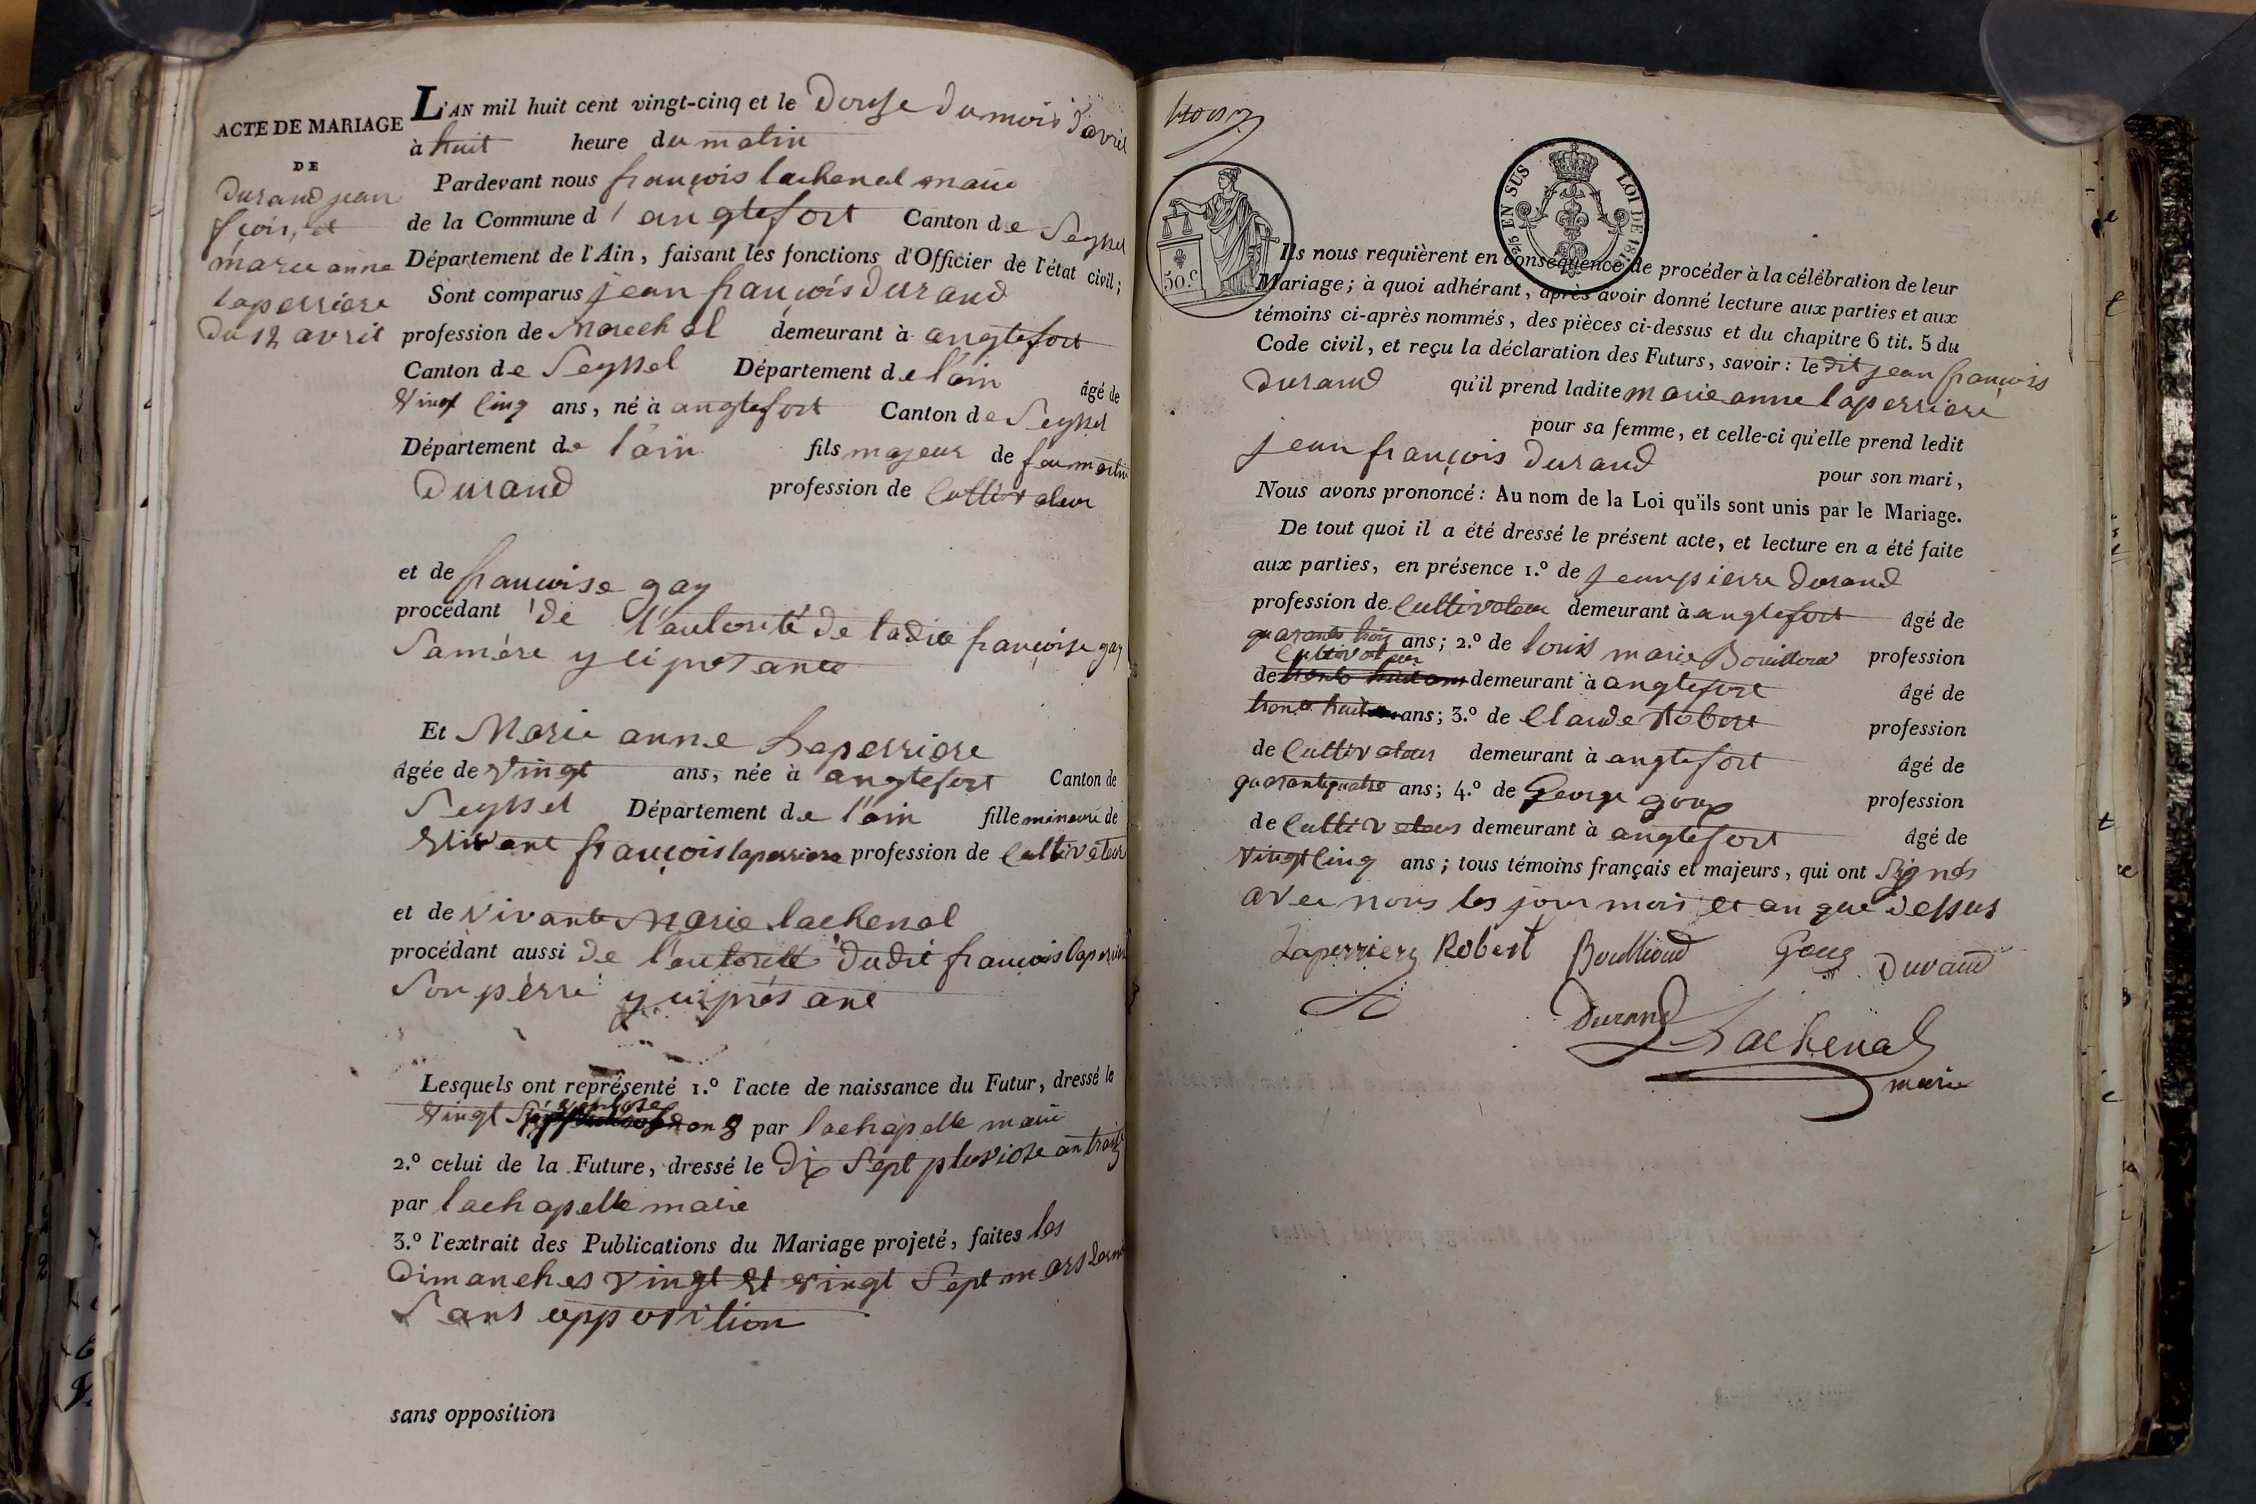 ACTE DE MARIAGE
DE
Durand jean
fçois, et
marie anne
laperriere
du 12 avril
L'AN mil huit cent vingt-cinq et le Douse du mois d'avril
à huit heure du matin
Pardevant nous françois lachenal maire
de la Commune d'anglefort Canton de Seyssel
Département de l'Ain, faisant les fonctions d'Officier de l'état civil;
Sont comparus jean françois Durand
profession de Marechal demeurant à anglefort
Canton de Seyssel Département de l'ain âgé de
vingt cinq ans, né à anglefort Canton de Seyssel
Département de l'ain fils majeur de feu martin
Durand profession de Cultivateur
et de françoise gay
procédant de l'autorité de ladite françoise gay
Sa mére y ci presante
Et Marie anne Laperriere
âgée de vingt ans, née à anglefort Canton de
Seyssel Département de l'ain fille mineure de
vivant françois laperriere profession de Cultivateur
et de vivante Marie lachenal
procédant aussi de l'autorité dudit françois laperriere
Son pérre y ci présant
Lesquels ont représenté 1.º l'acte de naissance du Futur, dressé le
vingt ventose an 8 par lachapelle maire
2.º celui de la Future, dressé le dix sept pluviose an traize
par lachapelle maire
3.º l'extrait des Publications du Mariage projeté, faites les
Dimanches vingt et vingt Sept mars dernier
Sans opposition
sans opposition
50 C.
25 EN SUS LOI DE 1816
Ils nous requièrent en conséquence de procéder à la célébration de leur
Mariage; à quoi adhérant, après avoir donné lecture aux parties et aux
témoins ci-après nommés, des pièces ci-dessus et du chapitre 6 tit. 5 du
Code civil, et reçu la déclaration des Futurs, savoir: le dit jean françois
Durand qu'il prend ladite marie anne laperriere
pour sa femme, et celle-ci qu'elle prend ledit
jean françois Durand pour son mari,
Nous avons prononcé: Au nom de la Loi qu'ils sont unis par le Mariage.
De tout quoi il a été dressé le présent acte, et lecture en a été faite
aux parties, en présence 1.º de jean pierre Durand
profession de Cultivateur demeurant à anglefort âgé de
quarante trois ans; 2.º de louis marie Bouilloud profession
de Cultivateur demeurant à anglefort âgé de
trente huit ans; 3.º de Claude Robert profession
de Cultivateur demeurant à anglefort âgé de
quarante quatre ans; 4.º de George goux profession
de Cultivateur demeurant à anglefort âgé de
vingt cinq ans; tous témoins français et majeurs, qui ont Signés
avec nous les jour mois et an que dessus
Laperriere Robert Bouilloud Goux Durand
Durand Lachenal
maire